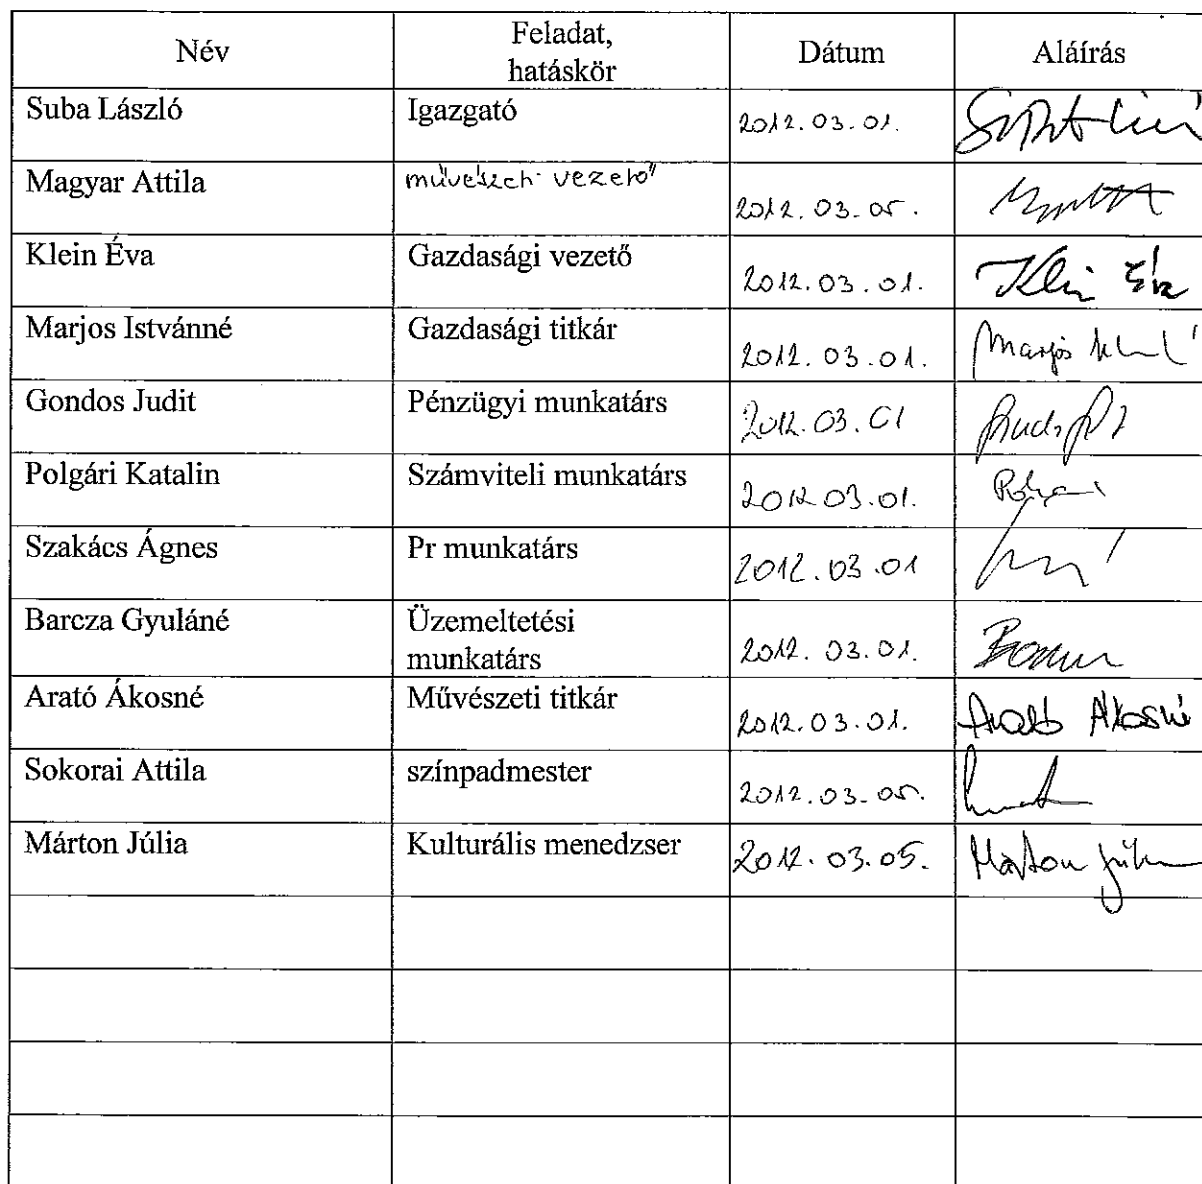 Név Feladat, hatáskör Dátum Aláírás
Suba László Igazgató 2012.03.01.
Magyar Attila művészeti vezető 2012.03.05.
Klein Éva Gazdasági vezető 2012.03.01. Klein Éva
Marjos Istvánné Gazdasági titkár 2012.03.01. Marjos
Gondos Judit Pénzügyi munkatárs 2012.03.01
Polgári Katalin Számviteli munkatárs 2012.03.01.
Szakács Ágnes Pr munkatárs 2012.03.01
Barcza Gyuláné Üzemeltetési munkatárs 2012.03.01.
Arató Ákosné Művészeti titkár 2012.03.01. Arató Ákosné
Sokorai Attila színpadmester 2012.03.05.
Márton Júlia Kulturális menedzser 2012.03.05. Márton Júlia